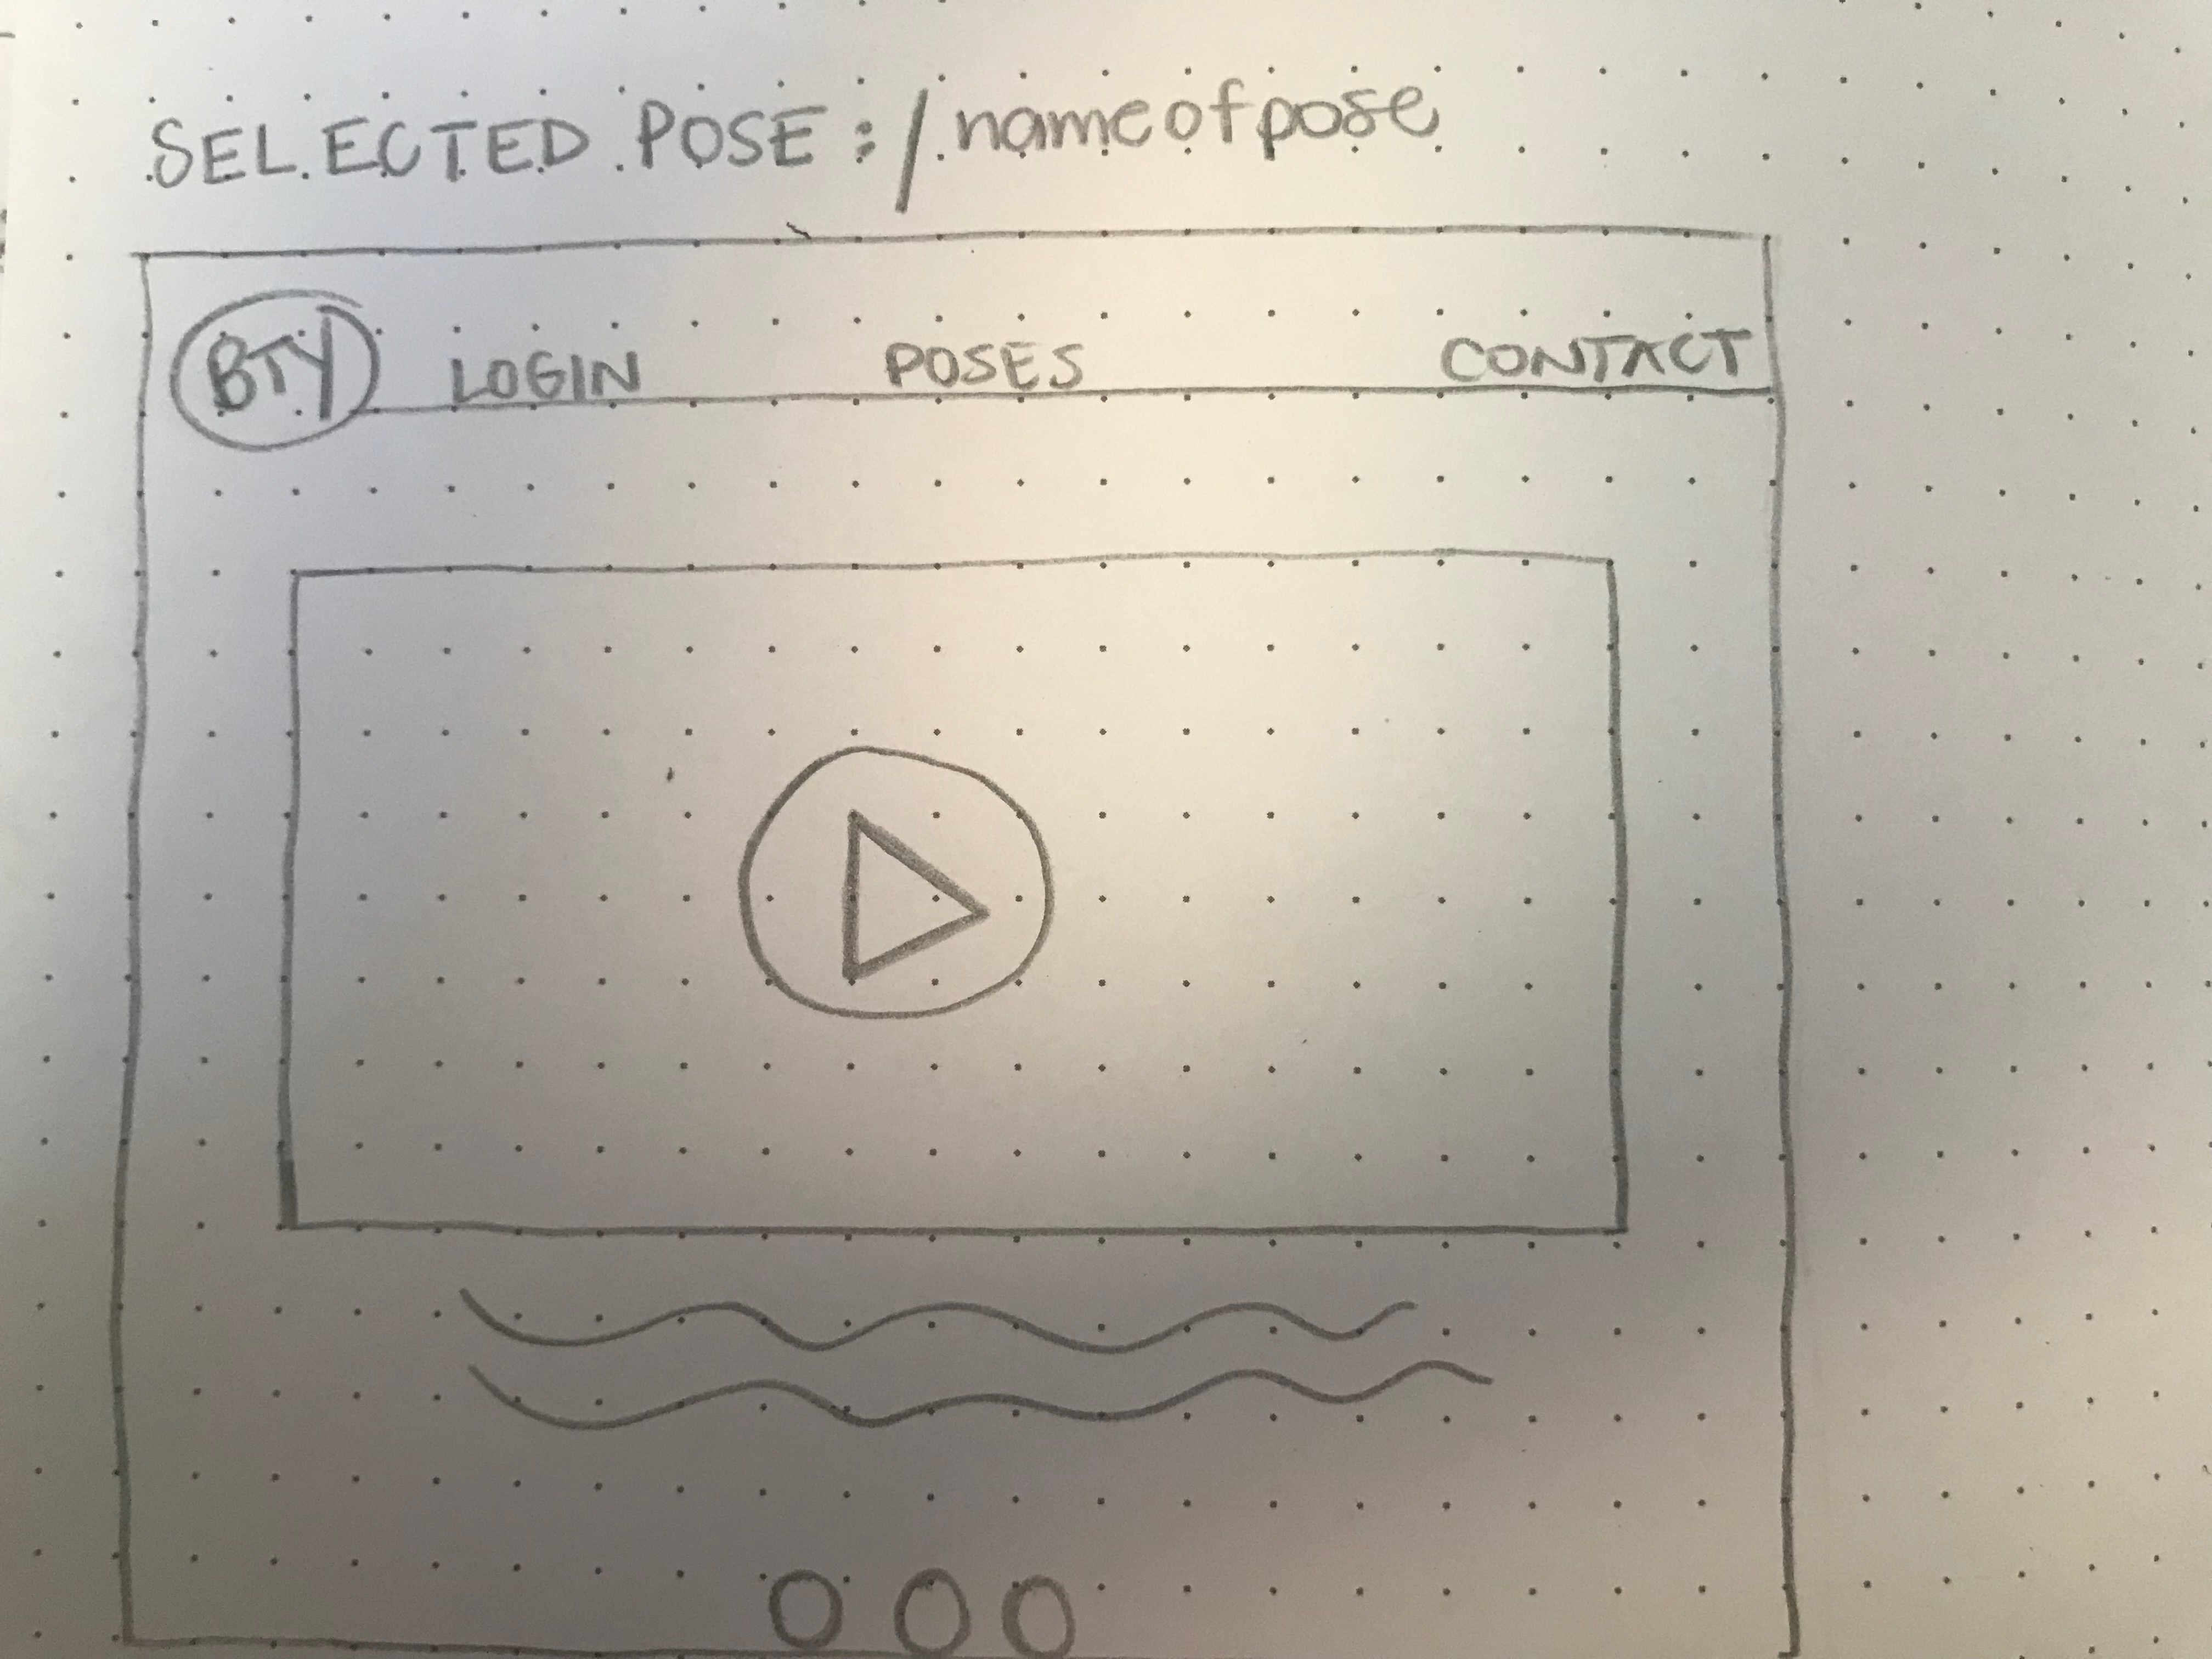 SELECTED POSE: /nameofpose
BTY LOGIN POSES CONTACT